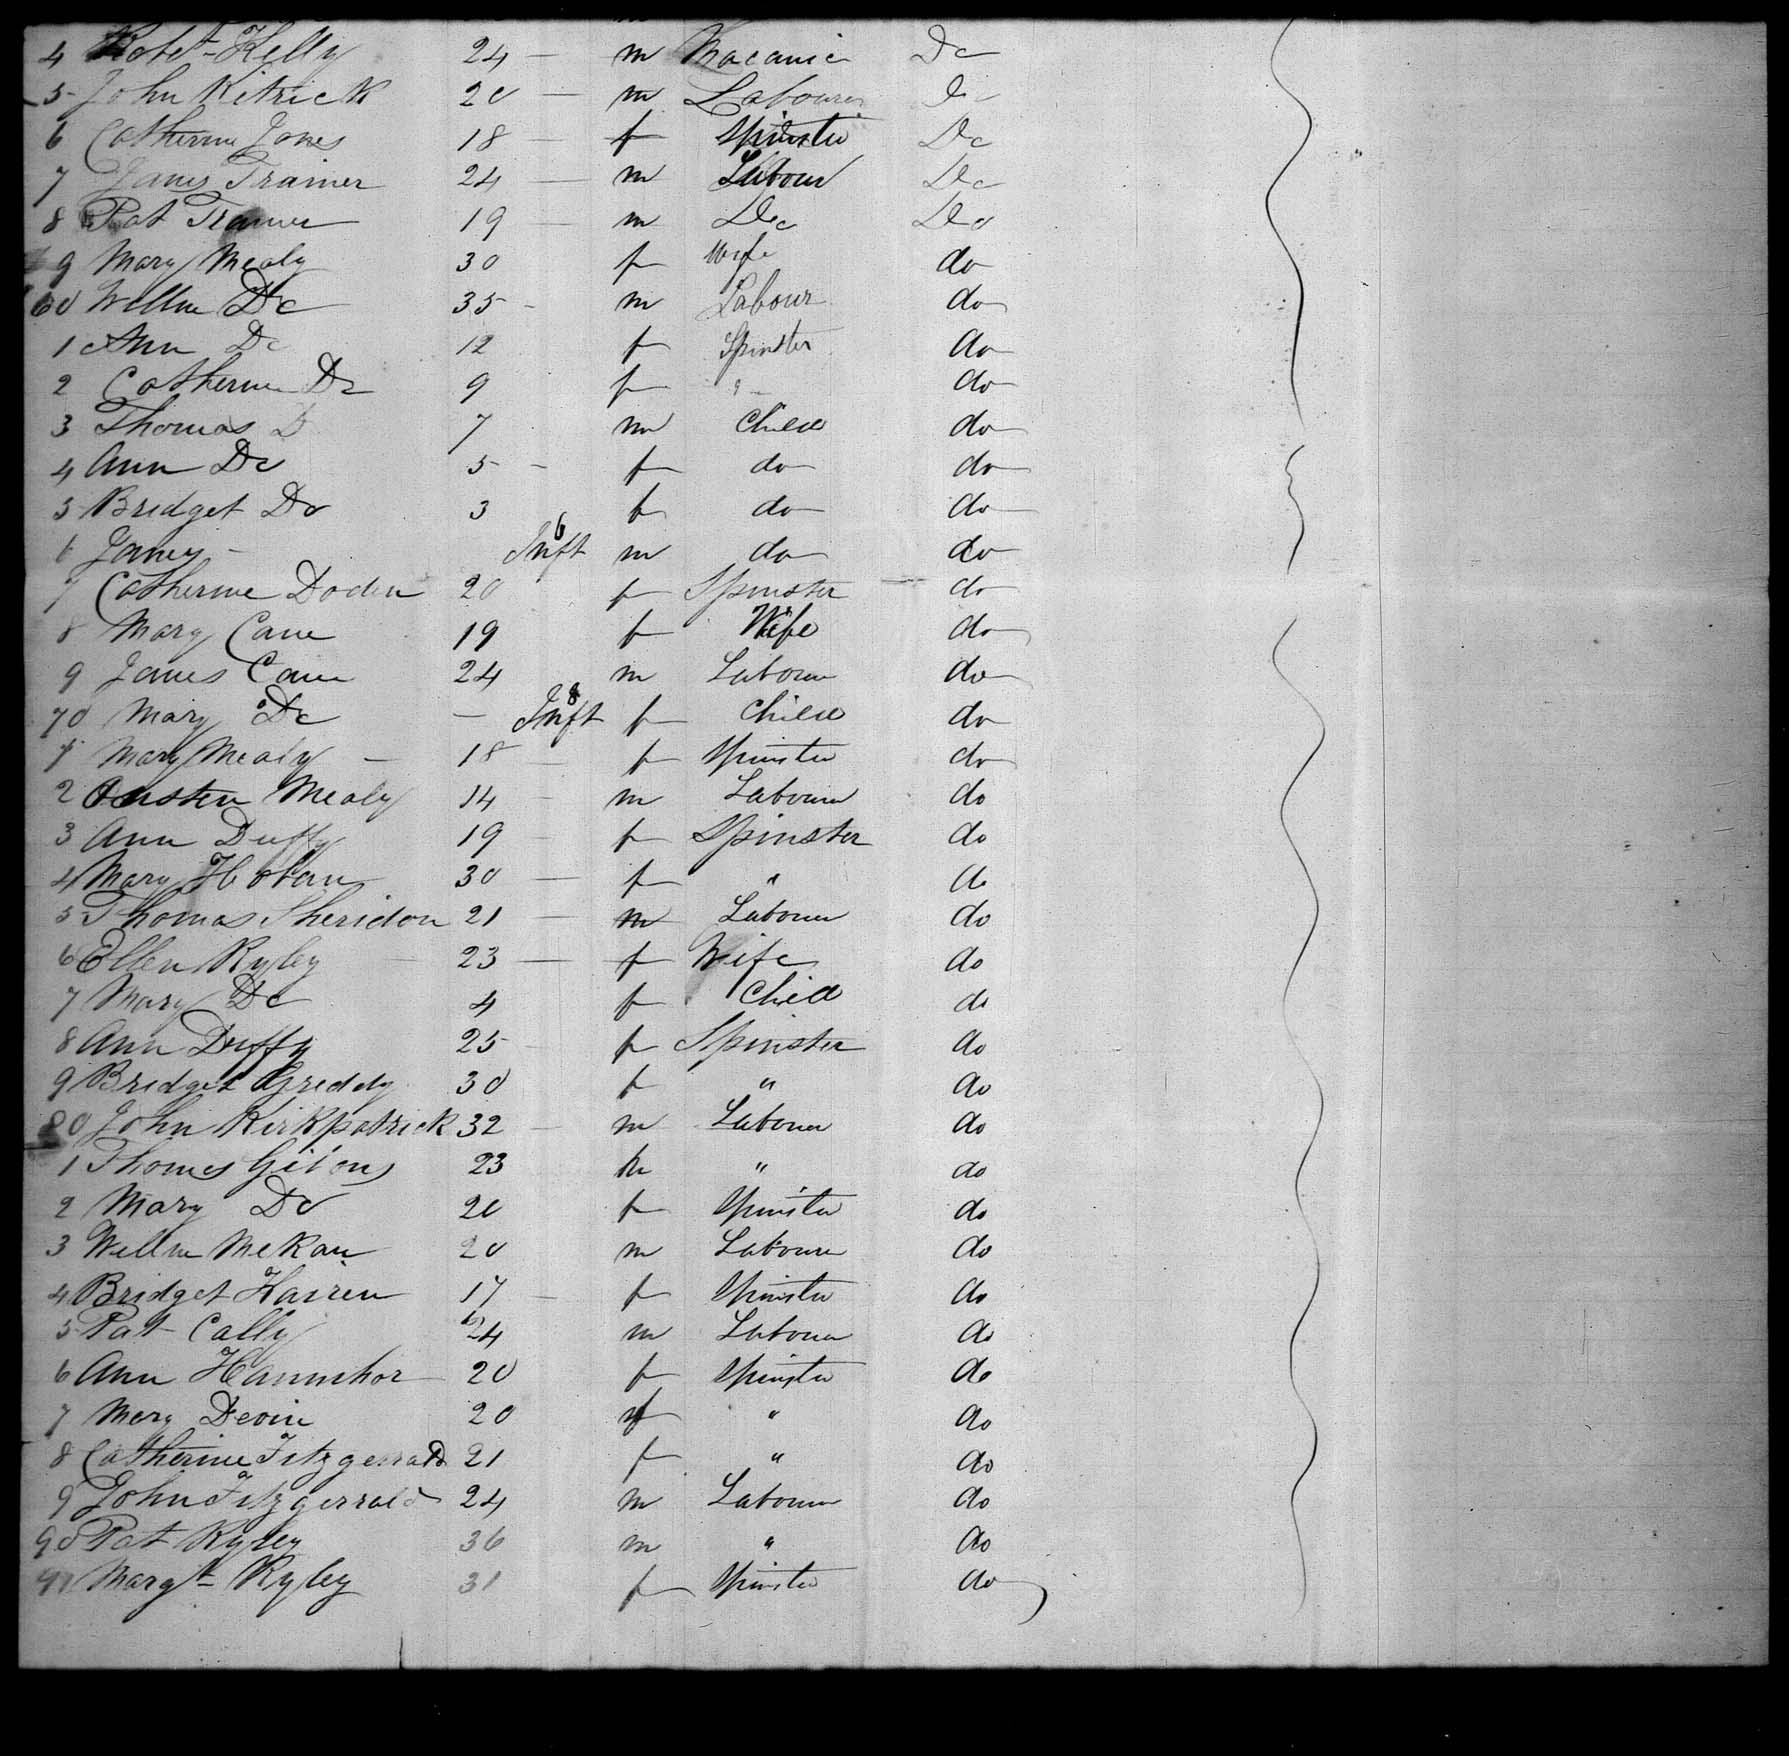 4 Robt Kelly 24 — m Macanic Do
5 John Kitrick 20 — m Labourer Do
6 Catherine Jones 18 — f Spinster Do
7 James Trainer 24 — m Labour Do
8 Pat Trainer 19 — m Do Do
9 Mary Mealy 30 f Wife do
60 Willm Do 35 - m Labour do
1 Ann Do 12 f Spinster do
2 Catherine Do 9 f " do
3 Thomas D 7 m Child do
4 Ann Do 5 - f do do
5 Bridget Do 3 f do do
6 James - 6 Inft m do do
7 Catherine Doden 20 f Spinster do
8 Mary Cane 19 f Wife do
9 James Cane 24 m Labour do
70 Mary Do — 8 Inft f Child do
1 Mary Mealy — 18 f Spinster do
2 Austen Mealy 14 m Labour do
3 Ann Duffy 19 — f Spinster do
4 Mary 30 — f " do
5 Thomas Sheridon 21 — m Labour do
6 Ellen Ryley 23 — f Wife do
7 Mary Do 4 f Child do
8 Ann Duffy 25 f Spinster do
9 Bridget Greddy 30 f " do
80 John Kirkpatrick 32 — m Labour do
1 Thomas Gibons 23 m " do
2 Mary Do 20 f Spinster do
3 Willm McKan 20 m Labour do
4 Bridget Hairen 17 — f Spinster do
5 Pat Cally 24 m Labour do
6 Ann 20 f Spinster do
7 Mary Devin 20 f " do
8 Catherine Fitzgerrald 21 f " do
9 John Fitzgerrald 24 m Labour do
90 Pat Ryley 36 m " do
91 Margt Ryley 31 f Spinster do